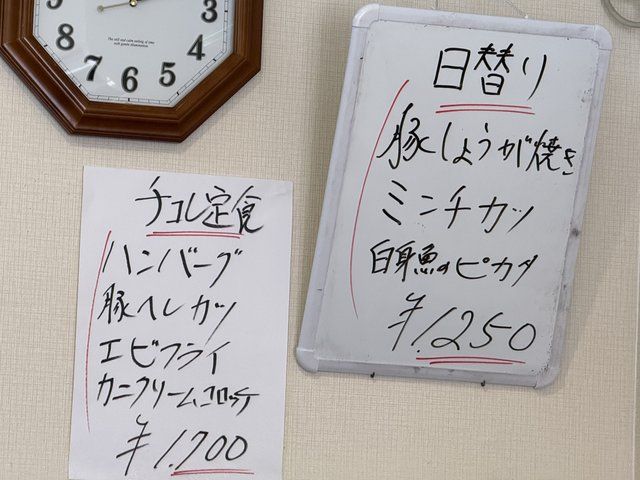 3
4
5
6
7
8
9
日替り
豚しょうが焼き
ミンチカツ
白身魚のピカタ
¥1.250
チコレ定食
ハンバーグ
豚ヘレカツ
エビフライ
カニクリームコロッケ
¥1.700